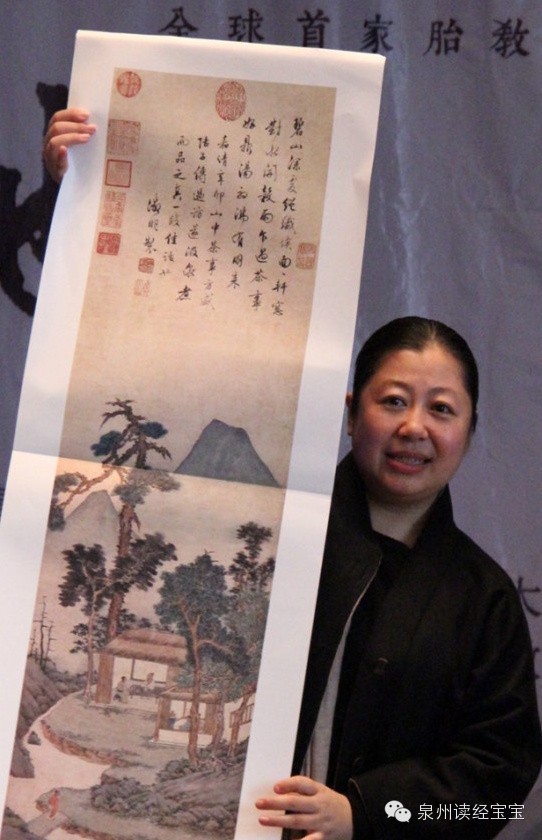 全球首家胎教
碧山深處絕纖埃面面軒窗
對水開穀雨乍過茶事
好鼎湯初沸有朋來
嘉靖辛卯山中茶事方盛
陸子傅過訪遂汲泉煮
而品之真一段佳話也
徵明製
大
泉州读经宝宝